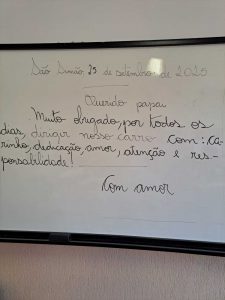 São Simão, 25 de setembro de 2025
Querido papai
Muito obrigado, por todos os
dias, dirigir nosso carro com: ca-
rinho, dedicação, amor, atenção e res-
ponsabilidade!
Com amor